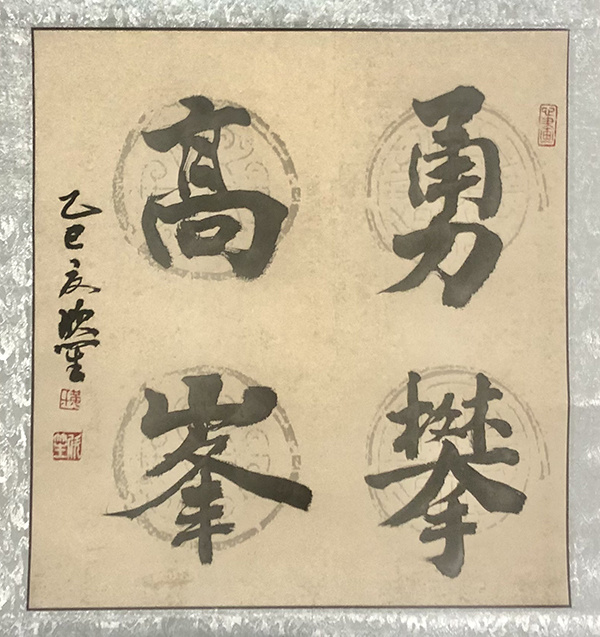 勇攀
高峯
乙巳夏